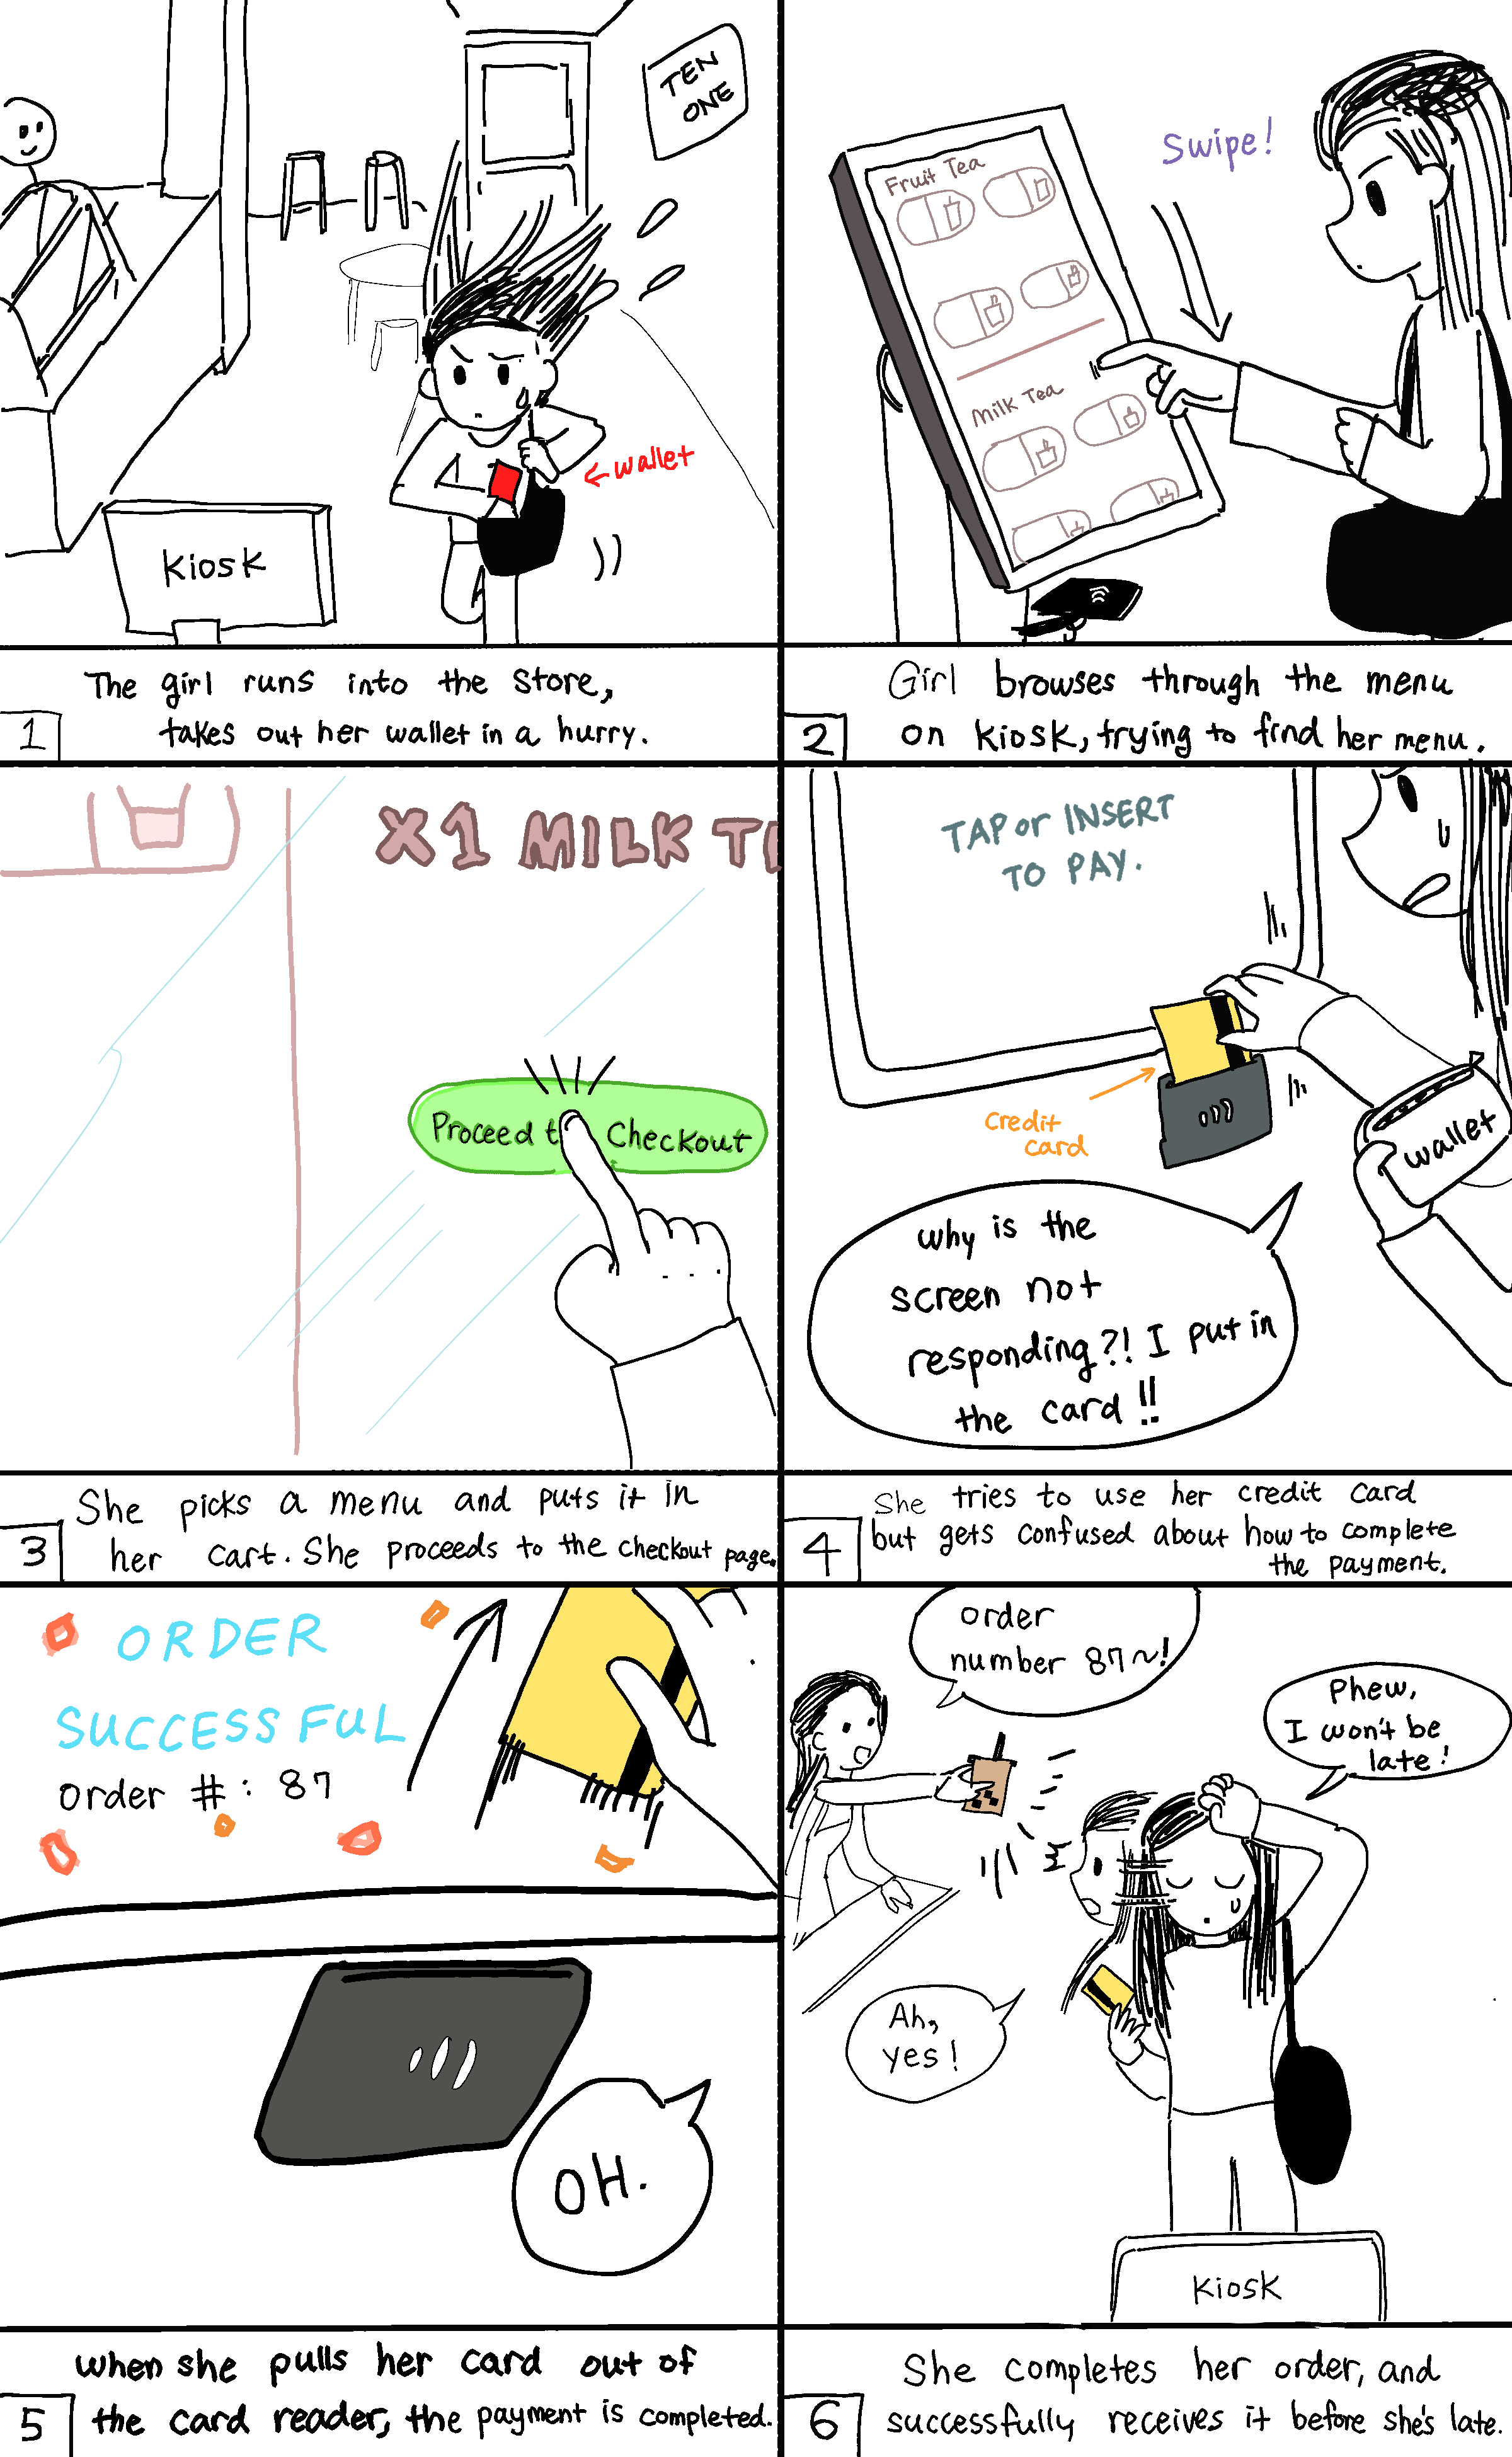 TEN
ONE
← wallet
Kiosk
The girl runs into the store,
1 takes out her wallet in a hurry.
Swipe!
Fruit Tea
Milk Tea
Girl browses through the menu
2 on kiosk, trying to find her menu.
X1 MILK T
Proceed t Checkout
She picks a menu and puts it in
3 her cart. She proceeds to the checkout page.
TAP or INSERT
TO PAY.
credit
card
wallet
why is the
screen not
responding?! I put in
the card!!
She tries to use her credit card
4 but gets confused about how to complete
the payment.
ORDER
SUCCESSFUL
order #: 87
OH.
when she pulls her card out of
5 the card reader, the payment is completed.
order
number 87~!
Phew,
I won't be
late!
Ah,
yes!
Kiosk
She completes her order, and
6 successfully receives it before she's late.